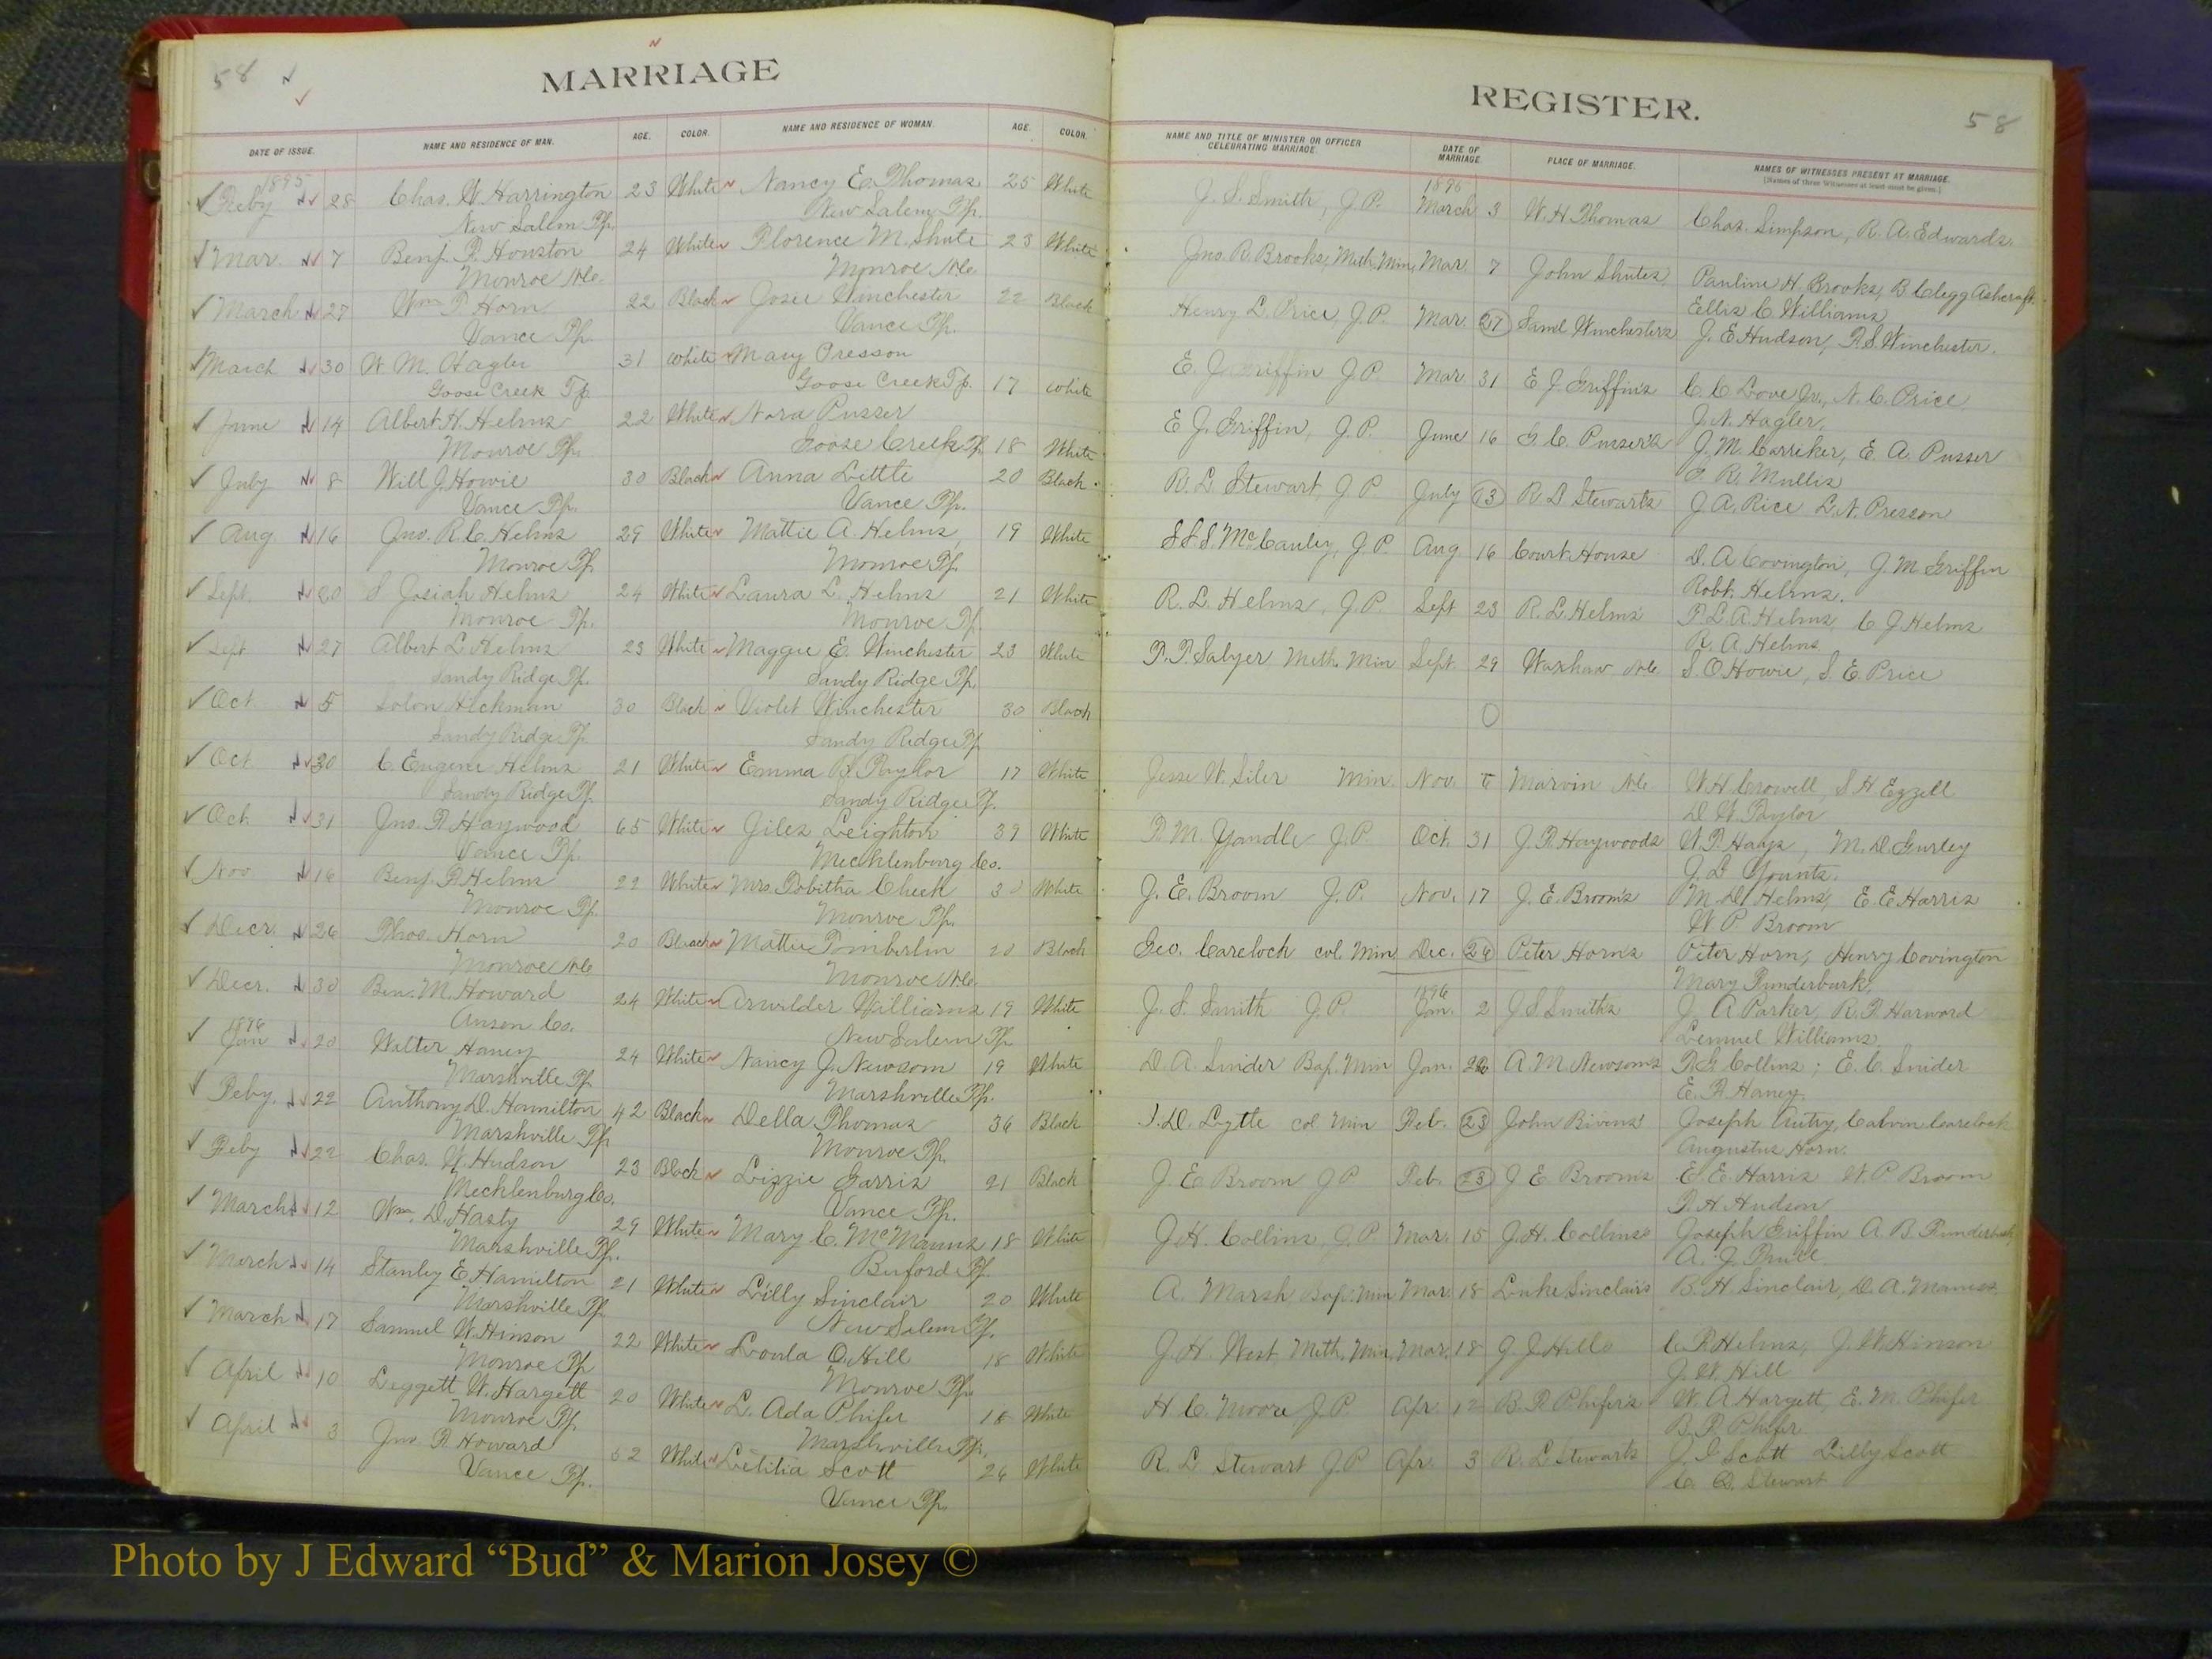 58
MARRIAGE
DATE OF ISSUE.
NAME AND RESIDENCE OF MAN.
AGE.
COLOR.
NAME AND RESIDENCE OF WOMAN.
AGE.
COLOR.
REGISTER.
58
NAME AND TITLE OF MINISTER OR OFFICER
CELEBRATING MARRIAGE.
DATE OF
MARRIAGE.
PLACE OF MARRIAGE.
NAMES OF WITNESSES PRESENT AT MARRIAGE.
[Names of three Witnesses at least must be given.]
1895 1896
Feby 28 Chas. W. Harrington 23 White Nancy E. Thomas 25 White J. S. Smith, J.P. March 3 W. H Thomas Chas. Simpson, R. A. Edwards
New Salem Tp. New Salem Tp.
Mar. 7 Benj. F. Houston 24 White Florence M. Shute 23 White Jno. R. Brooks, Meth. Min, Mar. 7 John Shutes Pauline H. Brooks, B. Clegg Ashcraft
Monroe N.C. Monroe N.C. Ellis C. Williams
March 27 Wm T. Horn 22 Black Josee Winchester 22 Black Henry L. Price, J.P. Mar. 27 Saml Winchesters J. E. Hudson, F. S. Winchester.
Vance Tp. Vance Tp.
March 30 W. M. Hagler 31 white Mary Presson E. J. Griffin J.P. Mar. 31 E J. Griffin's C. C Love Jr., N. C. Price,
Goose Creek Tp. Goose Creek Tp. 17 white J. N. Hagler.
June 14 Albert H. Helms 22 White Nora Pusser E J. Griffin, J.P. June 16 G. C. Pusser's J. M. Carriker, E. A. Pusser
Monroe Tp. Goose Creek Tp. 18 White R. Mullis
July 8 Will J. Howie 30 Black Anna Little 20 Black R. L Stewart, J P. July 13 R. L Stewarts J A. Rice L. N. Presson
Vance Tp. Vance Tp.
Aug. 16 Jno. R. C. Helms 29 White Mattie A. Helms, 19 White S. S. S. McCauley, J.P. Aug 16 Court House D. A Covington, J. M. Griffin
Monroe Tp. Monroe Tp. Robt. Helms.
Sept. 20 S Josiah Helms 24 White Laura L. Helms 21 White R. L. Helms, J.P. Sept 23 R. L Helms' P. L. A. Helms, C. J Helms
Monroe Tp. Monroe Tp. R. A. Helms
Sept 27 Albert L. Helms 23 White Maggie E. Winchester 23 White T. P. Salyer, Meth. Min Sept. 29 Waxhaw N.C S. O. Howie, S. E. Price
Sandy Ridge Tp. Sandy Ridge Tp.
Oct 5 Solon Hickman 30 Black Violet Winchester 30 Black
Sandy Ridge Tp. Sandy Ridge Tp
Oct 30 C. Eugene Helms 21 White Emma B. Taylor 17 White Jesse W. Siler Min Nov. Marvin N.C W. H. Crowell, S H Ezzell
Sandy Ridge Tp. Sandy Ridge Tp. D. W. Taylor
Oct. 31 Jno. T. Haywood 65 White Giles Leighton 39 White T. M. Yandle J.P. Oct. 31 J. T. Haywoods W. T. Hays, M. D. Gurley
Vance Tp. Mecklenburg Co. J. L Yountz.
Nov 16 Benj. F. Helms 22 White Mrs. Tobitha Cheek White J. E. Broom J.P. Nov. 17 J. E. Broom's M. D. Helms, E. E. Harris
Monroe Tp. Monroe Tp. W. P. Broom
Decr. 26 Thos. Horn 20 Black Mattie Timberlin 20 Black Geo. Careloch col. Min. Dec. 26 Peter Horn's Peter Horn, Henry Covington
Monroe N.C Monroe N.C. Mary Funderburk,
1896
Decr. 30 Ben. M. Howard 24 White Arwilder Williams 19 White J. S. Smith J.P. Jan. 2 J. S. Smith's J. A Parker, R. F. Harward
Anson Co. New Salem Tp Lemuel Williams
1896
Jan 20 Walter Haney 24 White Nancy J. Newsom 19 White D. A. Snider Bap. Min Jan. A. M. Newsom's T. G. Collins; E. C. Snider
Marshville Tp Marshville Tp. E. F. Haney.
Feby. 22 Anthony D. Hamilton 42 Black Della Thomas 36 Black I. D. Lytle col Min Feb. 23 John Bivens' Joseph Autry, Calvin Careloch
Marshville Tp Monroe Tp. Augustus Horn.
Feby 22 Chas. W. Hudson 23 Black Lizzie Garris 21 Black J. E Broom J P Feb. 23 J E Broom's E. E. Harris W. P Broom
Mecklenburg Co. Vance Tp. T. H. Hudson
March 12 Wm. D. Hasty 29 White Mary C. McManus 18 White J. H. Collins, J.P Mar. 15 J. H. Collins's Joseph Griffin A. B. Funderburk
Marshville Tp. Buford Tp. A. J. Pruitt
March 14 Stanly E. Hamilton 21 White Lilly Sinclair 20 White A. Marsh Bap. Min Mar. 18 Luke Sinclair's B. H. Sinclair, D. A. Maness
Marshville Tp New Salem Tp.
March 17 Samuel W. Hinson 22 White Loula O. Hill 18 White J. H. West, Meth. Min, Mar. 18 G J Hills C. T. Helms, J. W. Hinson
Monroe Tp Monroe Tp. J. W. Hill
April 10 Leggett W. Hargett 20 White L. Ada Phifer 18 White H. C. Moore J.P. Apr. 12 B. F. Phifer's W. A. Hargett, E. M. Phifer
Monroe Tp. Marshville Tp. B. F. Phifer
April 3 Jno F. Howard 52 White Letitia Scott 26 White R. L Stewart J.P Apr. 3 R. L Stewarts Scott Lilly Scott
Vance Tp. Vance Tp. Stewart
Photo by J Edward “Bud” & Marion Josey ©